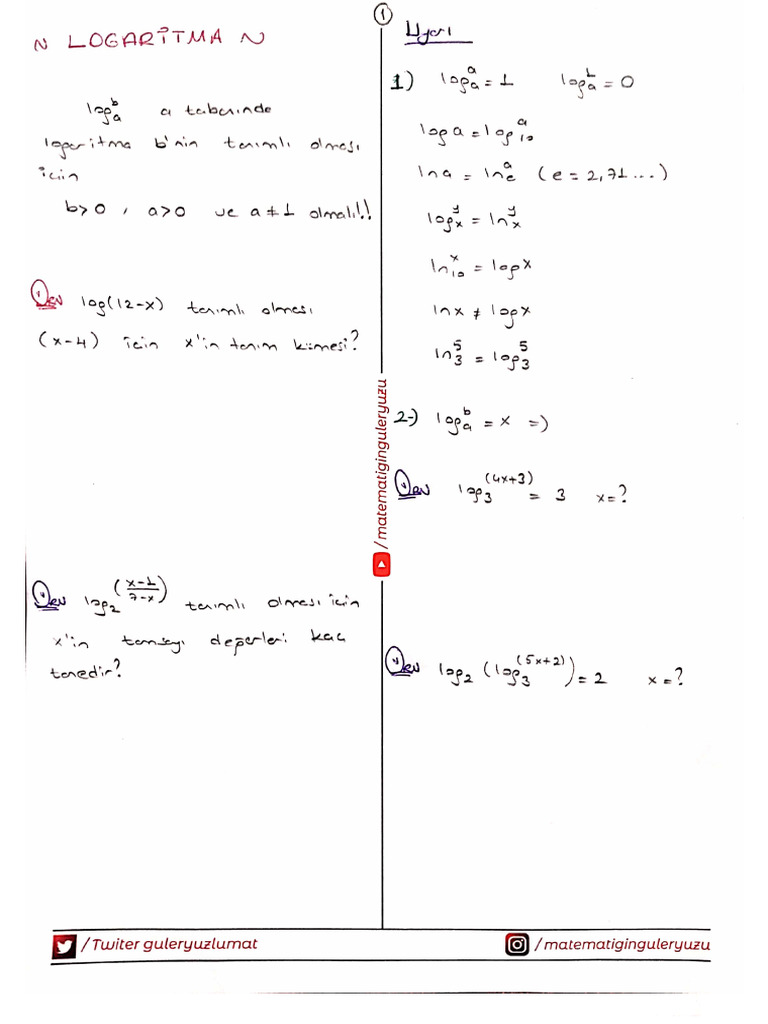 1
~ LOGARİTMA ~
logₐᵇ a tabanında
logaritma b'nin tanımlı olması
için
b>0 , a>0 ve a≠1 olmalı!!
Örn log(12-x) tanımlı olması
(x-4) için x'in tanım kümesi?
Örn log₂((x-1)/(7-x)) tanımlı olması için
x'in tamsayı değerleri kaç
tanedir?
Uyarı
1) logₐᵃ = 1 logₐ¹ = 0
log a = log₁₀ᵃ
ln a = lnₑᵃ (e = 2,71...)
logₓʸ = lnₓʸ
ln₁₀ˣ = log x
ln x ≠ log x
ln₃⁵ = log₃⁵
2-) logₐᵇ = x =)
Örn log₃^(4x+3) = 3 x=?
Örn log₂(log₃^(5x+2)) = 2 x=?
/matematiginguleryuzu
/Twiter guleryuzlumat
/matematiginguleryuzu